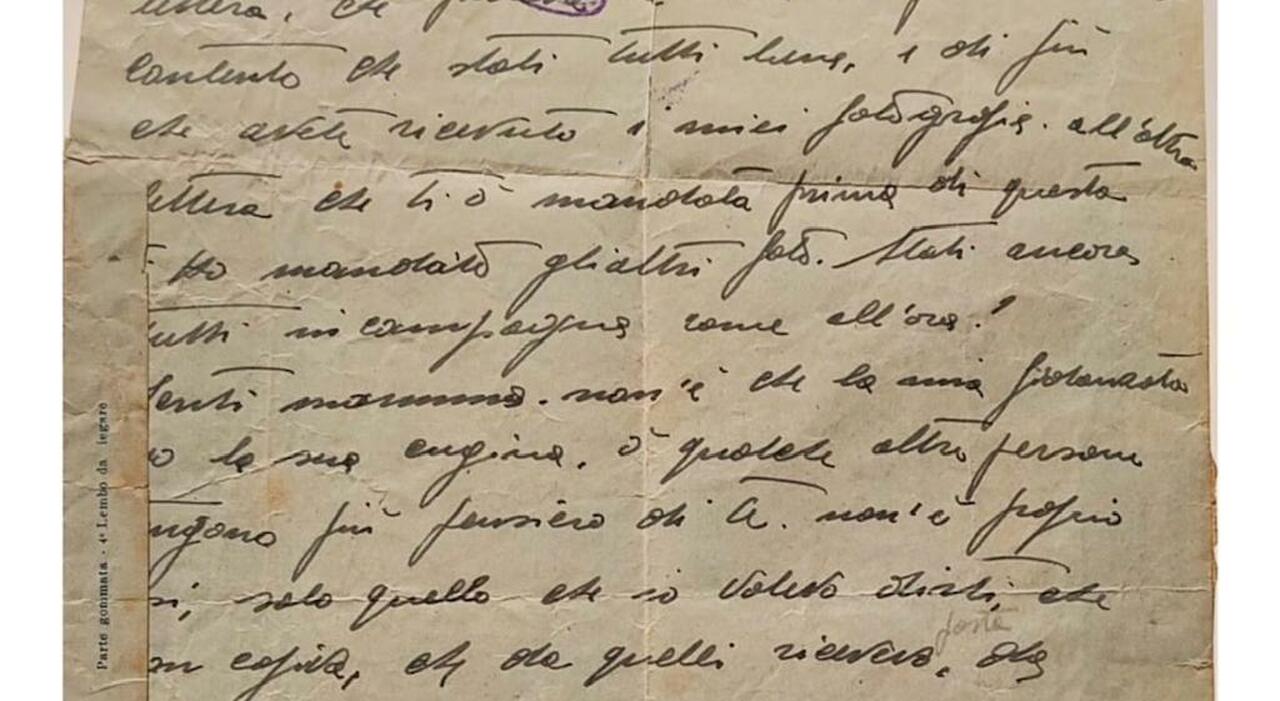 lettera, che
contento che stati tutti bene, e di più
che avete ricevuto i miei fotografie. all'altra
lettera che ti ò mandata prima di questa
ho mandato gli altri foto. Stati ancora
tutti in campagna come all'ora?
Senti mamma. non'è che la mia fidanzata
o la sua cugina, ò qualche altra persona
ngono più pensiero di te. non'è propio
si, solo quello che io volevo dirti, che
posta
capita, che da quelli ricevevo, da
Parte gommata - 4° Lembo da legare